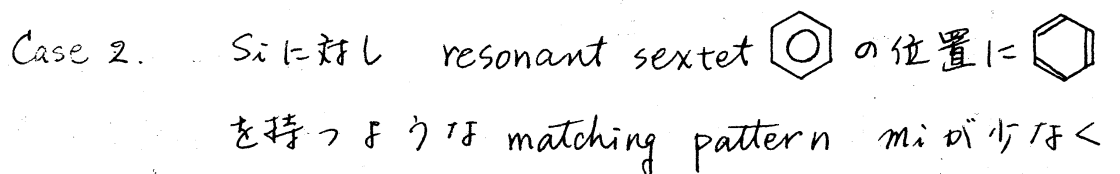 Case 2. Siに対し resonant sextet の位置に
を持つような matching pattern miが少なく